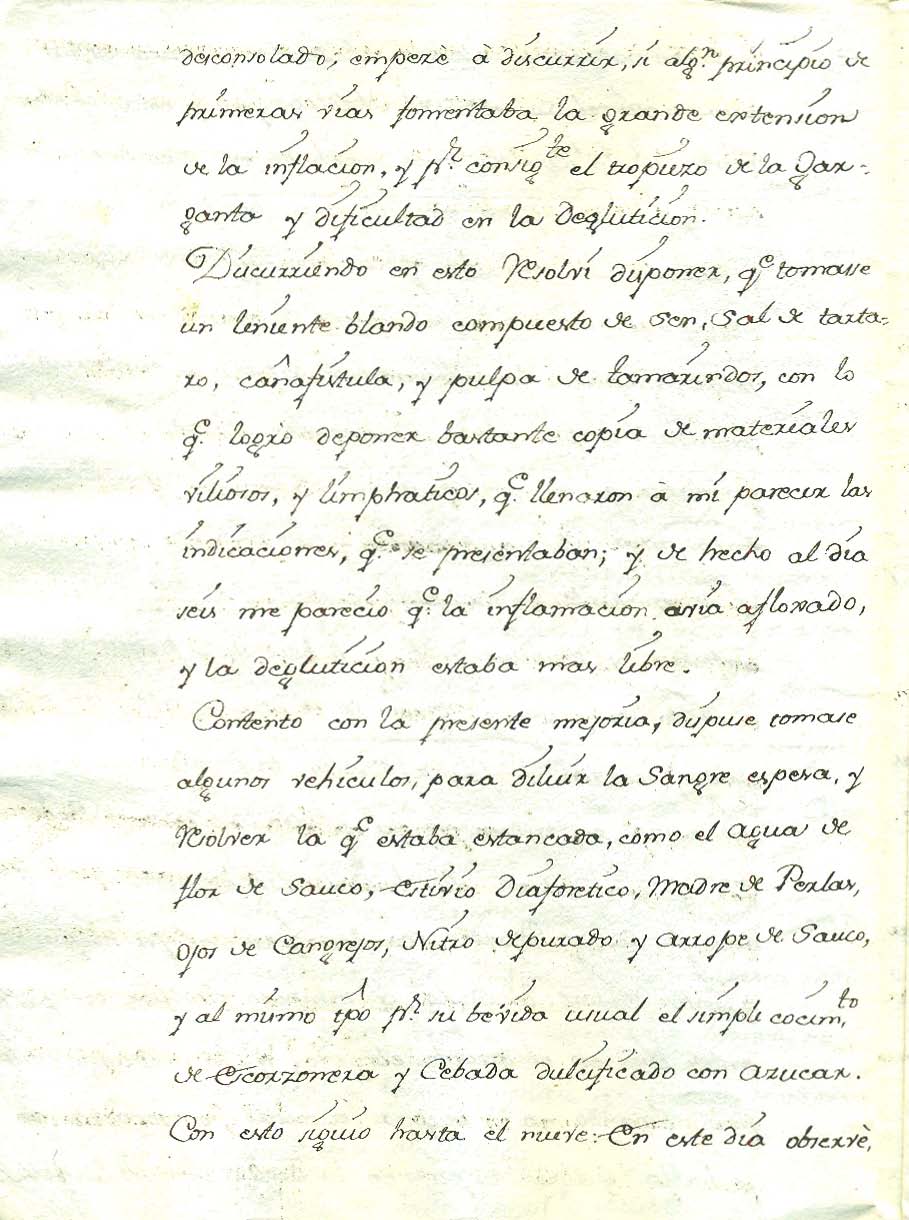 desconsolado; emperè à discurrir, si alg.n principio de
primeras vias fomentaba la grande extension
de la inflacion, y p.r consig.te el tropiezo de la Gar-
ganta y dificultad en la Degluticion.
Discurriendo en esto Resolvi disponer, q.e tomasse
un leniente blando compuesto de Sen, Sal de tarta-
ro, cañafistula, y pulpa de tamarindos, con lo
q.e logrò deponer bastante copia de materiales
viliosos, y limphaticos, q.e llenaron à mi parecer las
indicaciones, q.e se presentaban; y de hecho al dia
seis me pareciò q.e la inflamacion avia afloxado,
y la degluticion estaba mas libre.
Contento con la presente mejoria, dispuse tomase
algunos vehiculos, para diluir la Sangre espesa, y
Resolver la q.e estaba estancada, como el agua de
flor de Sauco, Estivio Diaforetico, Madre de Perlas,
Ojos de Cangrejos, Nitro depurado y Arrope de Sauco,
y al mismo tpô p.r su bévida usual el simple cocim.to
de Escorzonera y Cebada dulcificado con Azucar.
Con esto siguiò hasta el nueve: En este dia observè,